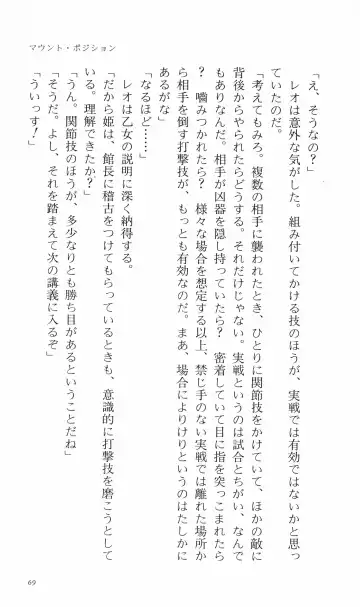 マウント・ポジション
「え、そうなの？」
　レオは意外な気がした。組み付いてかける技のほうが、実戦では有効ではないかと思っ
ていたのだ。
「考えてもみろ。複数の相手に襲われたとき、ひとりに関節技をかけていて、ほかの敵に
背後からやられたらどうする。それだけじゃない。実戦というのは試合とちがい、なんで
もありなんだ。相手が凶器を隠し持っていたら？　密着していて目に指を突っこまれたら
？　噛みつかれたら？　様々な場合を想定する以上、禁じ手のない実戦では離れた場所か
ら相手を倒す打撃技が、もっとも有効なのだ。まあ、場合によりけりというのはたしかに
あるがな」
「なるほど……」
　レオは乙女の説明に深く納得する。
「だから姫は、館長に稽古をつけてもらっているときも、意識的に打撃技を磨こうとして
いる。理解できたか？」
「うん。関節技のほうが、多少なりとも勝ち目があるということだね」
「そうだ。よし、それを踏まえて次の講義に入るぞ」
「ういっす！」
69